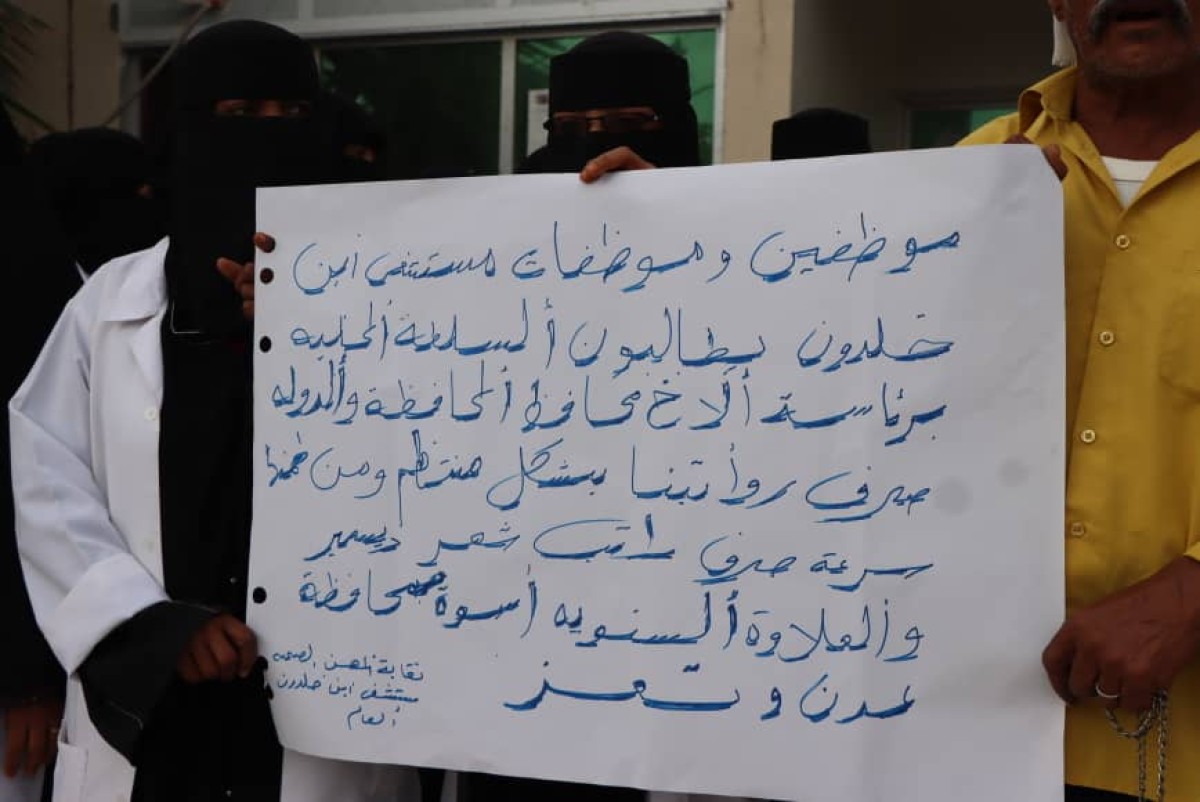 موظفين وموظفات مستشفى ابن
خلدون يطالبون ألسلطة المحليه
برئاسة ألاخ محافظ ألمحافظة وألدوله
صرف روأتبنا بشكل منتظم ومن ضمنها
سرعة صرف راتب شهر ديسمبر
وألعلاوة ألسنويه أسوة بمحافظة
عدن وتعز
نقابة المهن الصحيه
مستشفى ابن خلدون
ألعام